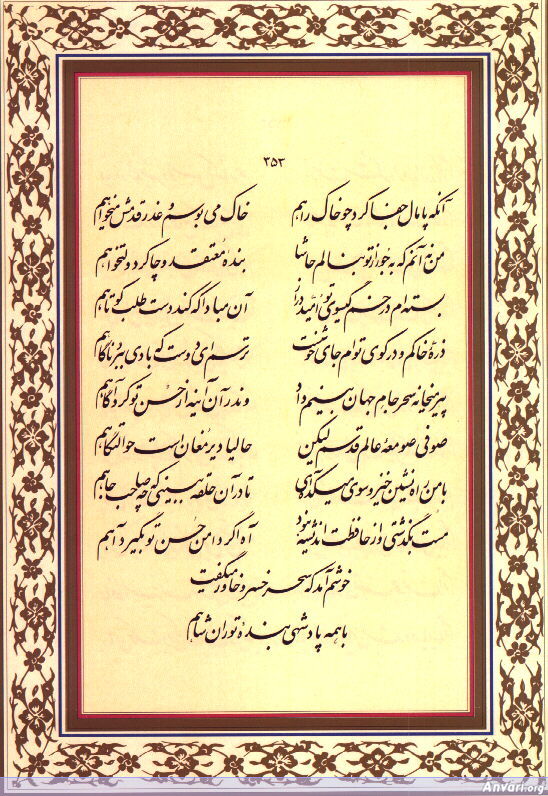 ۳۵۳
آنکه پامال جفا کرد چو خاک راهم خاک می بوسم و عذر قدمش میخواهم
من نه آنم که به جور از تو بنالم حاشا بنده معتقد و چاکر دولتخواهم
بسته ام در خم گیسوی تو امید دراز آن مبادا که کند دست طلب کوتاهم
ذره خاکم و در کوی توام جای خوشست ترسم ای دوست که بادی ببرد ناگاهم
پیر میخانه سحر جام جهان بینم داد و ندر آن آینه از حسن تو کرد آگاهم
صوفی صومعه عالم قدسم لیکن حالیا دیر مغان است حوالتگاهم
با من راه نشین خیز و سوی میکده آی تا در آن حلقه ببینی که چه صاحب جاهم
مست بگذشتی و از حافظت اندیشه نبود آه اگر دامن حسن تو بگیرد آهم
خوشم آمد که سحر خسرو خاور میگفت
با همه پادشهی بنده توران شاهم
Anvari.org